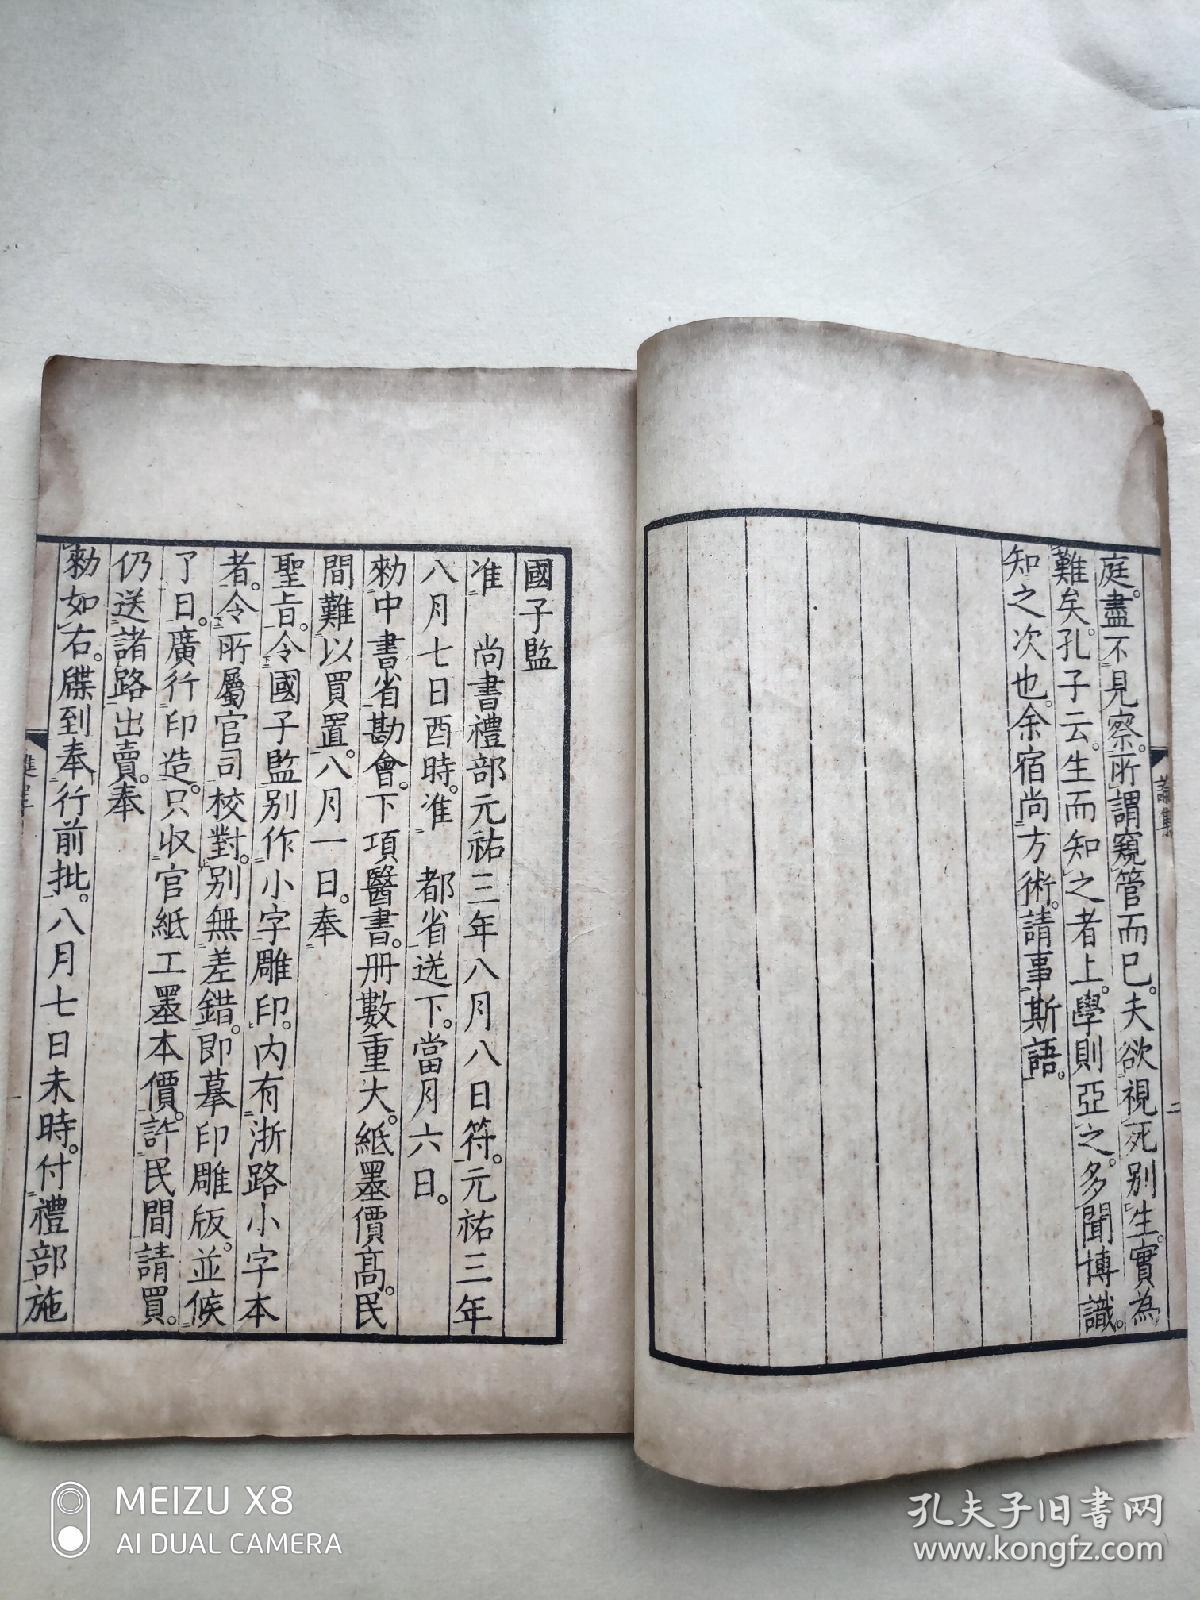 庭。盡不見察。所謂窺管而已。夫欲視死別生。實為
難矣。孔子云。生而知之者上。學則亞之。多聞博識。
知之次也。余宿尚方術。請事斯語。
二
國子監
准　尚書禮部元祐三年八月八日符。元祐三年
八月七日酉時。准　都省送下。當月六日。
勑中書省勘會。下項醫書。冊數重大。紙墨價高。民
間難以買置。八月一日。奉
聖旨。令國子監別作小字雕印。內有浙路小字本
者。令所屬官司校對。別無差錯。即摹印雕版。並候
了日。廣行印造。只收官紙工墨本價。許民間請買。
仍送諸路出賣。奉
勑如右。牒到奉行。前批。八月七日未時。付禮部施
MEIZU X8
AI DUAL CAMERA
孔夫子旧书网
www.kongfz.com